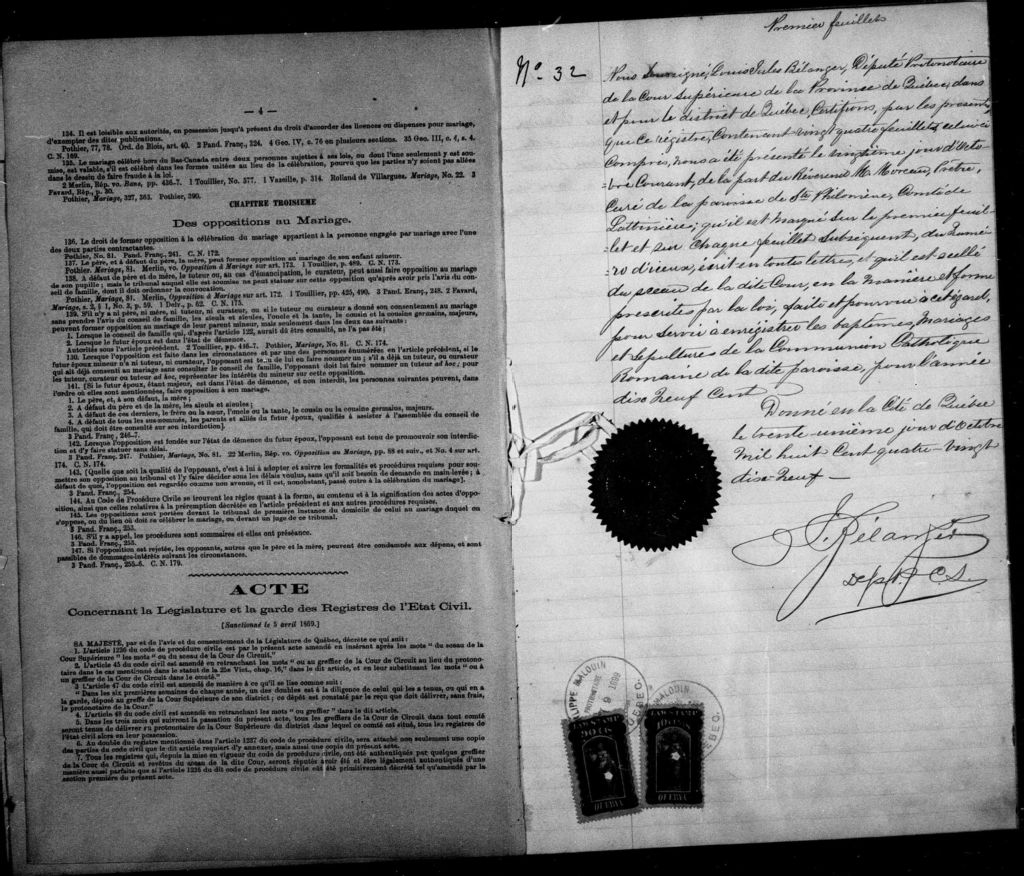 — 4 —
134. Il est loisible aux autorités, en possession jusqu'à présent du droit d'accorder des licences ou dispenses pour mariage,
d'exempter des dites publications.
Pothier, 77, 78. Ord. de Blois, art. 40. 3 Pand. Franç., 324. 4 Geo. IV, c. 76 en plusieurs sections. 35 Geo. III, c. 4, s. 4.
C. N. 169.
135. Le mariage célébré hors du Bas-Canada entre deux personnes sujettes à ses lois, ou dont l'une seulement y est sou-
mise, est valable, s'il est célébré dans les formes usitées au lieu de la célébration, pourvu que les parties n'y soient pas allées
dans le dessein de faire fraude à la loi.
2 Merlin, Rép. vo. Bans, pp. 436-7. 1 Touillier, No. 577. 1 Vazeille, p. 314. Rolland de Villargues, Mariage, No. 22. 3
Favard, Rép., p. 30.
Pothier, Mariage, 327, 363. Pothier, 390.
CHAPITRE TROISIEME
Des oppositions au Mariage.
136. Le droit de former opposition à la célébration du mariage appartient à la personne engagée par mariage avec l'une
des deux parties contractantes.
Pothier, No. 81. Pand. Franç., 241. C. N. 172.
137. Le père, et à défaut du père, la mère, peut former opposition au mariage de son enfant mineur.
Pothier, Mariage, 81. Merlin, vo. Opposition à Mariage sur art. 173. 1 Touillier, p. 489. C. N. 173.
138. A défaut de père et de mère, le tuteur ou, au cas d'émancipation, le curateur, peut aussi faire opposition au mariage
de son pupille; mais le tribunal auquel elle est soumise ne peut statuer sur cette opposition qu'après avoir pris l'avis du con-
seil de famille, dont il doit ordonner la convocation.
Pothier, Mariage, 81. Merlin, Opposition à Mariage sur art. 172. 1 Touillier, pp. 425, 490. 3 Pand. Franç., 248. 2 Favard,
Mariage, s. 2, § 1, No. 3, p. 59. 1 Delv., p. 62. C. N. 173.
139. S'il y a ni père, ni mère, ni tuteur, ni curateur, ou si le tuteur ou curateur a donné son consentement au mariage
sans prendre l'avis du conseil de famille, les aïeuls et aïeules, l'oncle et la tante, le cousin et la cousine germains, majeurs,
peuvent former opposition au mariage de leur parent mineur, mais seulement dans les deux cas suivants:
1. Lorsque le conseil de famille qui, d'après l'article 122, aurait dû être consulté, ne l'a pas été;
2. Lorsque le futur époux est dans l'état de démence.
Autorités sous l'article précédent. 2 Touillier, pp. 446-7. Pothier, Mariage, No. 81. C. N. 174.
Lorsque l'opposition est faite dans les circonstances et par une des personnes énumérées en l'article précédent, si le
futur époux mineur n'a ni tuteur, ni curateur, l'opposant est tenu de lui en faire nommer un; s'il a déjà un tuteur, ou curateur
qui ait déjà consenti au mariage sans consulter le conseil de famille, l'opposant doit lui faire nommer un tuteur ad hoc; pour
les tuteur, curateur ou tuteur ad hoc, représenter les intérêts du mineur sur cette opposition.
141. [Si le futur époux, étant majeur, est dans l'état de démence, et non interdit, les personnes suivantes peuvent, dans
l'ordre où elles sont mentionnées, faire opposition à son mariage.
1. Le père, et à son défaut, la mère;
2. A défaut du père et de la mère, les aïeuls et aïeules;
3. A défaut de ces derniers, le frère ou la sœur, l'oncle ou la tante, le cousin ou la cousine germains, majeurs.
4. A défaut de tous les sus-nommés, les parents et alliés du futur époux, qualifiés à assister à l'assemblée du conseil de
famille, qui doit être consulté sur son interdiction].
3 Pand. Franç., 246-7.
142. Lorsque l'opposition est fondée sur l'état de démence du futur époux, l'opposant est tenu de promouvoir son interdic-
tion et d'y faire statuer sans délai.
3 Pand. Franç., 247. Pothier, Mariage, No. 81. 22 Merlin, Rép. vo. Opposition au Mariage, pp. 88 et suiv., et No. 4 sur art.
174. C. N. 174.
143. [Quelle que soit la qualité de l'opposant, c'est à lui à adopter et suivre les formalités et procédures requises pour sou-
mettre son opposition au tribunal et l'y faire décider sous les délais voulus, sans qu'il soit besoin de demande en main-levée; à
défaut de quoi, l'opposition est regardée comme non avenue, et il est, nonobstant, passé outre à la célébration du mariage].
3 Pand. Franç., 254.
144. Au Code de Procédure Civile se trouvent les règles quant à la forme, au contenu et à la signification des actes d'oppo-
sition, ainsi que celles relatives à la péremption décrétée en l'article précédent et aux autres procédures requises.
145. Les oppositions sont portées devant le tribunal de première instance du domicile de celui au mariage duquel on
s'oppose, ou du lieu où doit se célébrer le mariage, ou devant un juge de ce tribunal.
3 Pand. Franç., 253.
146. S'il y a appel, les procédures sont sommaires et elles ont préséance.
3 Pand. Franç., 253.
147. Si l'opposition est rejetée, les opposants, autres que le père et la mère, peuvent être condamnés aux dépens, et sont
passibles de dommages-intérêts suivant les circonstances.
3 Pand. Franç., 255-6. C. N. 179.
ACTE
Concernant la Législature et la garde des Registres de l'Etat Civil.
[Sanctionné le 5 avril 1869.]
SA MAJESTÉ, par et de l'avis et du consentement de la Législature de Québec, décrète ce qui suit:
1. L'article 1236 du code de procédure civile est par le présent acte amendé en insérant après les mots " du sceau de la
Cour Supérieure " les mots " ou du sceau de la Cour de Circuit."
2. L'article 45 du code civil est amendé en retranchant les mots " ou au greffier de la Cour de Circuit au lieu du protono-
taire dans le cas mentionné dans le statut de la 25e Vict., chap. 16," dans le dit article, et en leur substituant les mots " ou à
au greffier de la Cour de Circuit dans le comté."
3 L'article 47 du code civil est amendé de manière à ce qu'il se lise comme suit:
" Dans les six premières semaines de chaque année, un des doubles est à la diligence de celui qui les a tenus, ou qui en a
la garde, déposé au greffe de la Cour Supérieure de son district; ce dépôt est constaté par le reçu que doit délivrer, sans frais,
le protonotaire de la Cour."
4. L'article 48 du code civil est amendé en retranchant les mots " ou greffier " dans le dit article.
5. Dans les trois mois qui suivront la passation du présent acte, tous les greffiers de la Cour de Circuit dans tout comté
seront tenus de délivrer au protonotaire de la Cour Supérieure du district dans lequel ce comté est situé, tous les registres de
l'état civil alors en leur possession.
6. Au double du registre mentionné dans l'article 1237 du code de procédure civile, sera attaché non seulement une copie
des parties du code civil que le dit article requiert d'y annexer, mais aussi une copie du présent acte.
7. Tous les registres qui, depuis la mise en vigueur du code de procédure civile, ont été authentiqués par quelque greffier
de la Cour de Circuit et revêtus du sceau de la dite Cour, seront réputés avoir été et être légalement authentiqués d'une
manière aussi parfaite que si l'article 1236 du dit code de procédure civile eût été primitivement décrété tel qu'amendé par la
section première du présent acte.
Premier feuillets
No. 32
Nous Soussigné, Louis Jules Bélanger, Député Protonotaire
de la Cour Supérieure de la Province de Québec, dans
et pour le district de Québec, Certifions, par les présents,
que ce régistre, Contenant vingt quatre feuillets, celui-ci
Compris, nous a été présenté le vingtième jour d'Octo-
-bre Courant, de la part du Révérend Mr. Moreau, Prêtre,
Curé de la paroisse de Ste Philomène, Comté de
Lotbinière; qu'il est marqué sur le premier feuil-
-let et sur chaque feuillet subséquent, du numé-
-ro d'iceux, écrit en toutes lettres, et qu'il est scellé
du sceau de la dite Cour, en la manière et forme
prescrites par la loi, faite et pourvue à cet égard,
pour servir à enregistrer les baptêmes, Mariages
et Sépultures de la Communion Catholique
Romaine de la dite paroisse, pour l'année
dix neuf Cent
Donné en la Cité de Québec
le trente unième jour d'Octobre
Mil huit Cent quatre-vingt
dix-neuf—
J. Bélanger
Dept. P. C. S.
ILIPPE MALOUIN
9 1899
QUEBEC.
MALOUIN
BEC.
LAW STAMP
QUEBEC
LAW STAMP
QUEBEC